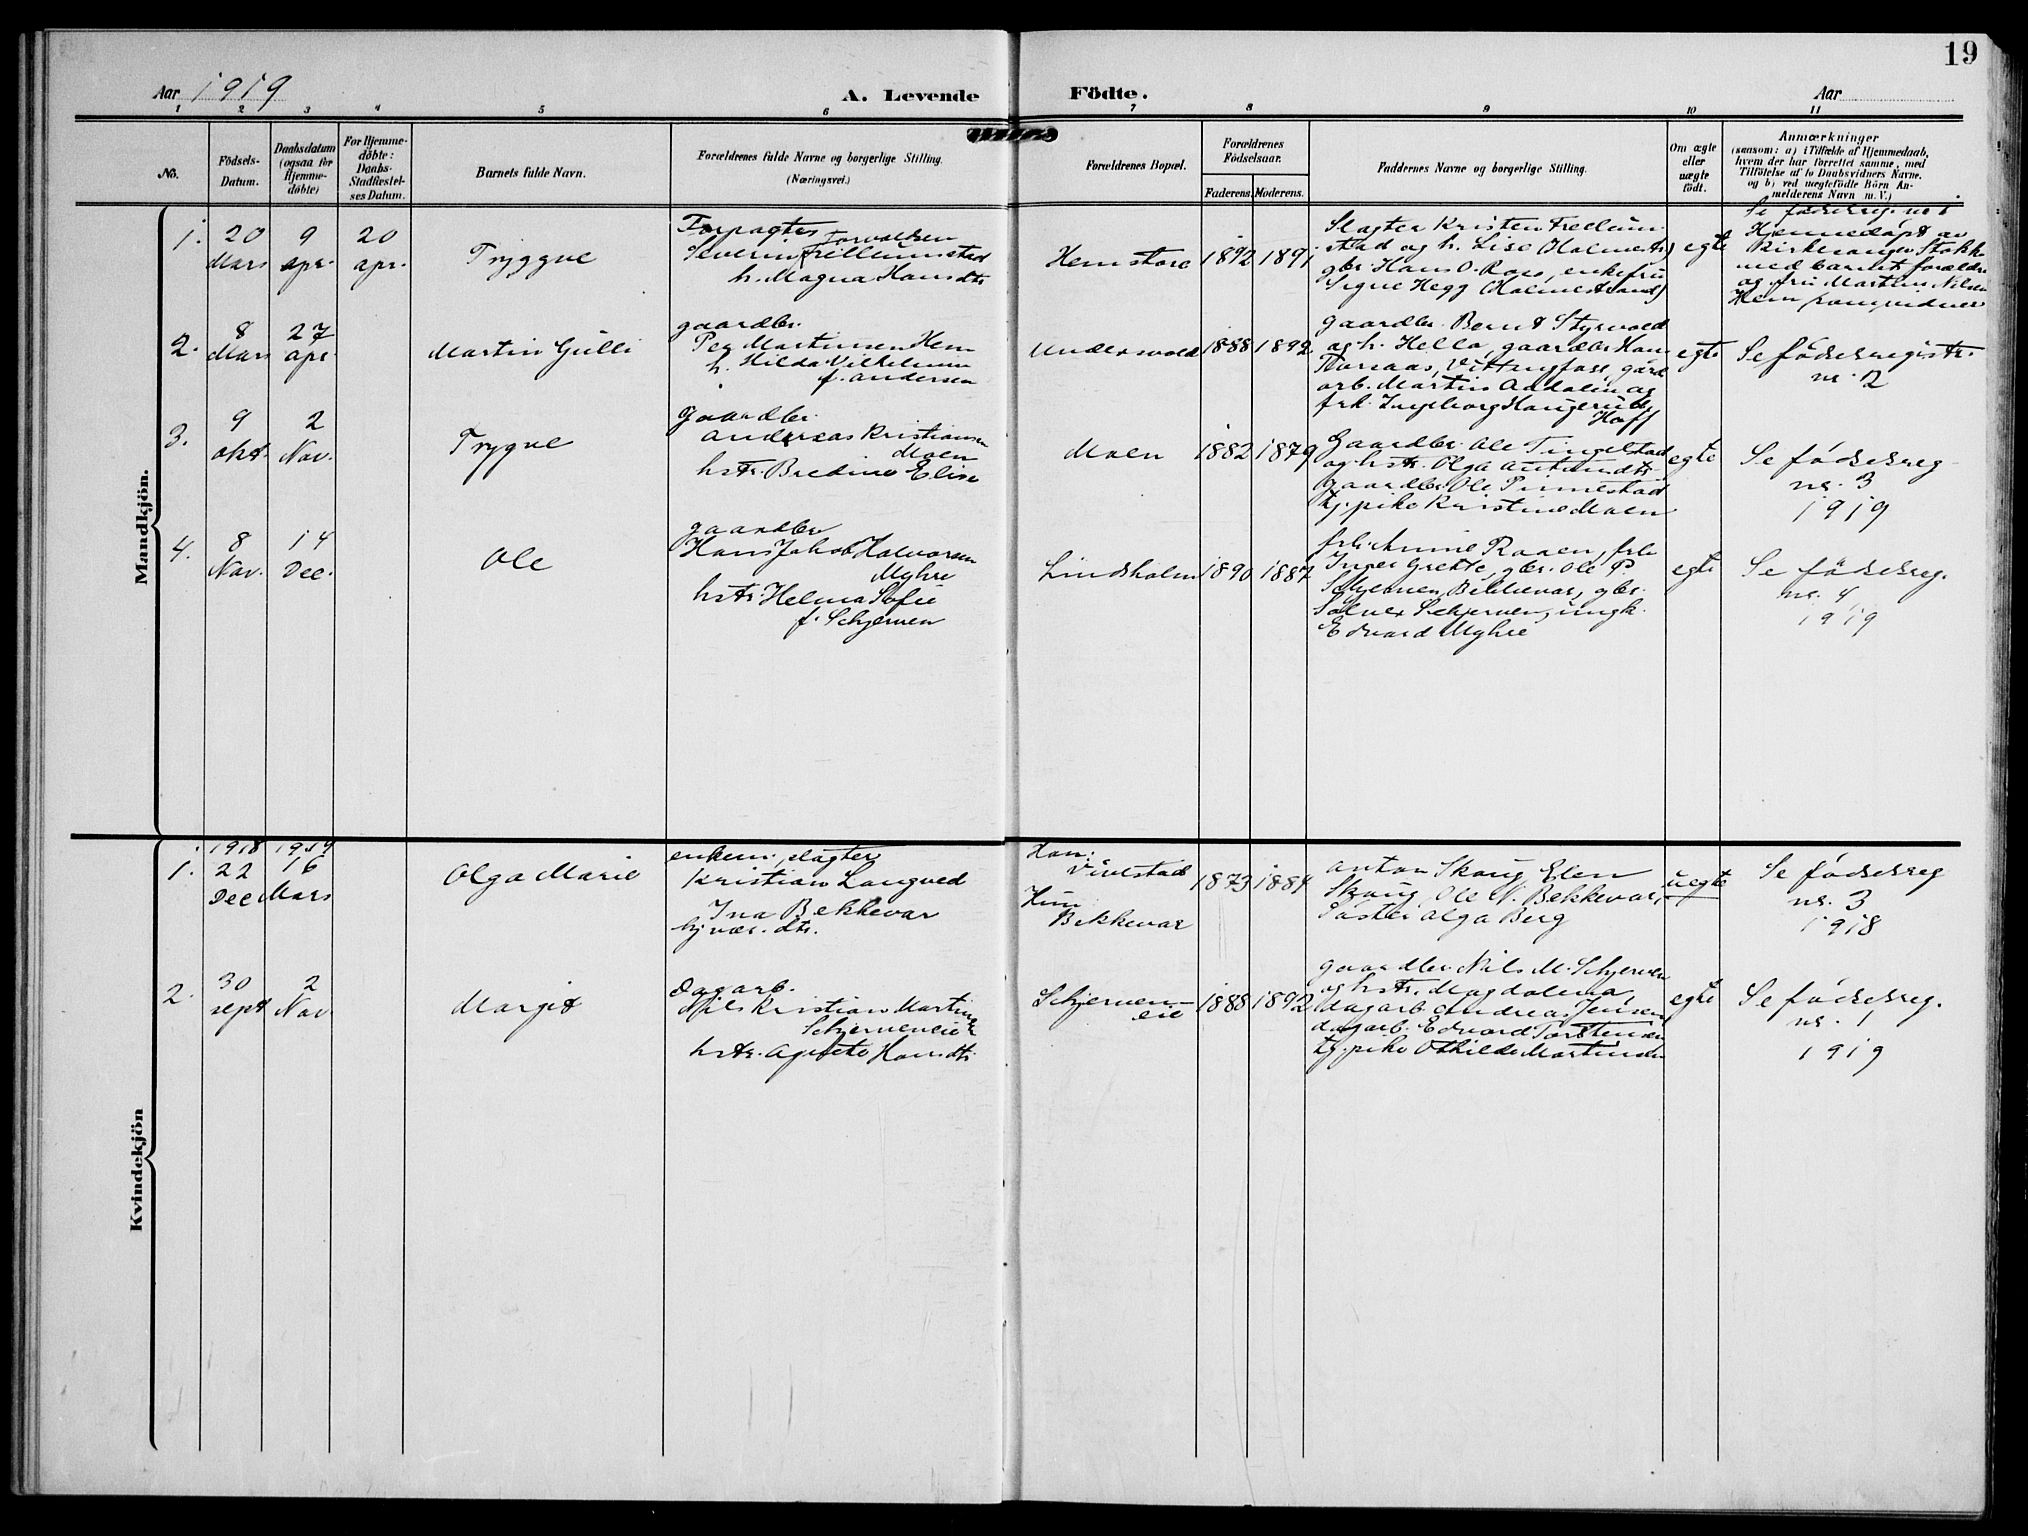 19
Aar 1919
A. Levende Födte.
Aar
1 2 3 4 5 6 7 8 9 10 11
No.
Födsels-Datum.
Daabsdatum (ogsaa for Hjemme-döbte)
For Hjemme-döbte: Daabs-Stadfæstel-ses Datum.
Barnets fulde Navn.
Forældrenes fulde Navne og borgerlige Stilling.
(Næringsvei.)
Forældrenes Bopæl.
Forældrenes Födselsaar.
Faderens. Moderens.
Faddernes Navne og borgerlige Stilling.
Om ægte eller uægte födt.
Anmærkninger
(saasom: a) i Tilfælde af Hjemmedaab,
hvem der har forrettet samme, med
Tilföielse af to Daabsvidners Navne,
og b) ved uægtefödte Börn An-
melderens Navn m. V.)
Mandkjön.
1.
20 Mars
9 apr.
20 apr.
Tryggve
Forpagter
Torvaldsen
Severin Frellumstad
h. Magna Hansdtr
Hem store
1892 1891
Slagter Kristen Freelum-
stad og h. Lise (Holmestr)
gbr. Hans O. Roos, enkefru
Signe Hegg (Holmestrand)
egte
Se födselsreg. nr 1
Hjemmedöpt av
Kirkesanger Stokke
med barnets forældre
og fru Martin Nilsen
Hem som vidner
2.
8 Mars
27 apr.
Martin Gulli
gaardbr.
Per Martinsen Hem
h. Hilda Vilhelmine
f. Andersen
Undersvold
1888 1892
gaardbr. Bernt Styrvold
og h. Hella, gaardbr Hans
Toraas, Vittingfoss, gård
arb. Martin Addalin og
frk. Ingeborg Haugerud,
Hoff
egte
Se födselsregistr.
nr. 2
3.
9 okt.
2 Nov.
Trygve
Gaardbr.
Andreas Kristiansen
Moen
hstr. Bredine Elise
Moen
1882 1879
Gaardbr. Ole Tingelstad
og hstr. Olga Amundtr
Gaardbr. Ole Pinnestad
tj. pike Kristine Moen
egte
Se födselsreg
nr. 3
1919
4.
8 Nov.
14 Dec.
Ole
gaardbr
Hans Jakob Halvorsen
Myhre
hstr Helma Sofie
f. Schjerven
Lindsholm
1890 1887
frk. Anne Raaen, frk
Inger Grette, gbr. Ole P.
Schjerven, Bekkevar, gbr.
Sölver Schjerven, ungk.
Edvard Myhre
egte
Se födselsreg.
nr. 4
1919
Kvindekjön
1.
1918 22 Dec
1919 16 Mars
Olga Marie
enkem. slagter
Kristian Langved
Ina Bekkevar
hjvær. dtr.
Han:
Vivestad
Hun
Bekkevar
1873 1884
Anton Skoug, Elen
Skoug, Ole N. Bekkevar,
Söster Olga Berg
uegte
Se födselsreg
nr. 3
1918
2.
30 sept
2 Nov
Margit
Dagarb.
Nils Kristian Martinsen
Schjerveneie
hstr. Agnete Hansdtr
Schjerven-
eie
1888 1892
gaardbr. Nils M. Schjerven
og hstr. Magdalena,
dagarb. Andreas Jensen
dagarb. Edvard Torstensen
tj. pike Othilde Martinsen
egte
Se födselsreg.
nr. 1
1919